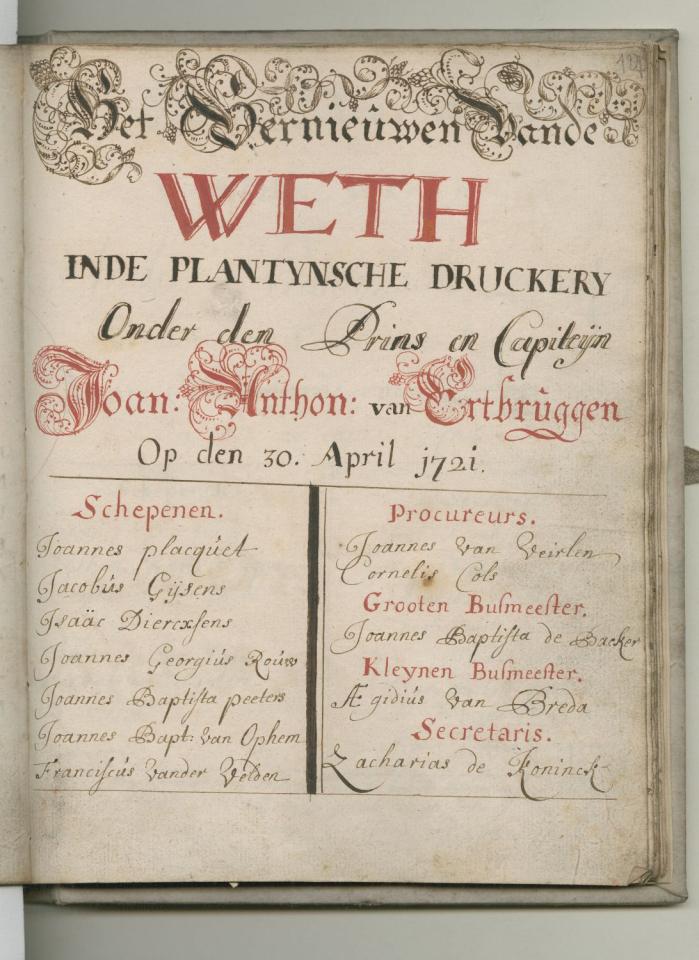 Het Vernieuwen Vande
WETH
INDE PLANTYNSCHE DRUCKERY
Onder den Prins en Capiteÿn
Joan: Anthon: van Ertbrùggen
Op den 30. April 1721.
Schepenen.
Joannes placqùet
Jacobùs Gijsens
Isaäc Diercxsens
Joannes Georgiùs Roùw
Joannes Baptista peeters
Joannes Bapt: van Ophem
Franciscùs Vander Velden
Procureurs.
Joannes Van Veirlen
Cornelis Cols
Grooten Busmeester.
Joannes Baptista de Backer
Kleynen Busmeester.
Ægidiùs Van Breda
Secretaris.
Zacharias de Koninck